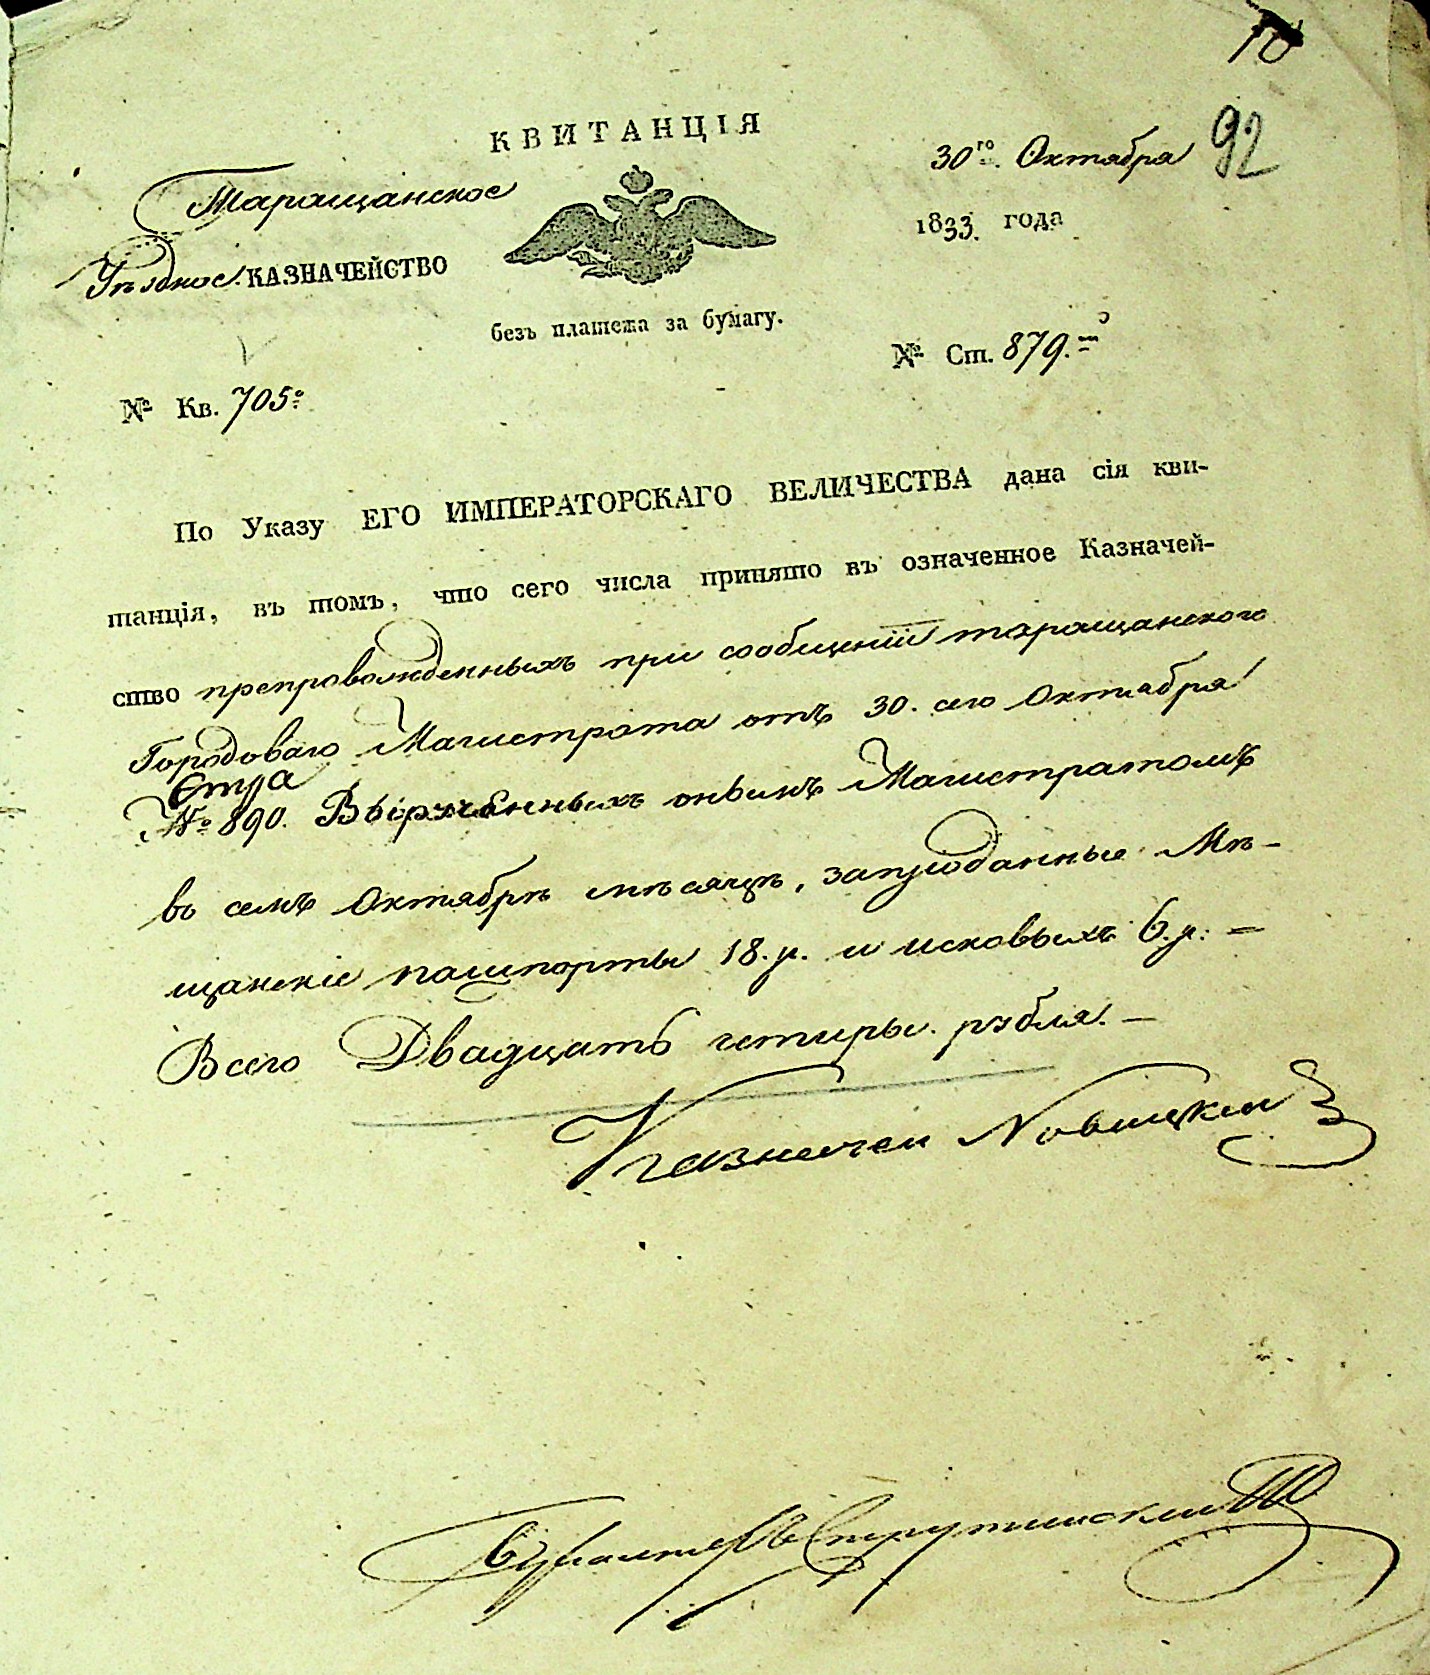 10
92
КВИТАНЦІЯ
30го. Октября
1833. года
Таращанское
Уѣздное КАЗНАЧЕЙСТВО
безъ платежа за бумагу.
№ Ст. 879.
№ Кв. 705
По Указу ЕГО ИМПЕРАТОРСКАГО ВЕЛИЧЕСТВА дана сія кви-
танція, въ томъ, что сего числа принято въ означенное Казначей-
ство препровожденныхъ при сообщеніи таращанского
Городоваго Магистрата отъ 30. сего Октября
№ 890. Вырученныхъ онымъ Магистратомъ
въ семъ Октябрѣ мѣсяцѣ, за Мѣ-
щанскіе пашпорты 18. р. и исковыхъ 6. р. =
Всего Двадцать четыры рубля. —
Казначеи Новицкіи
Бухгалтеръ